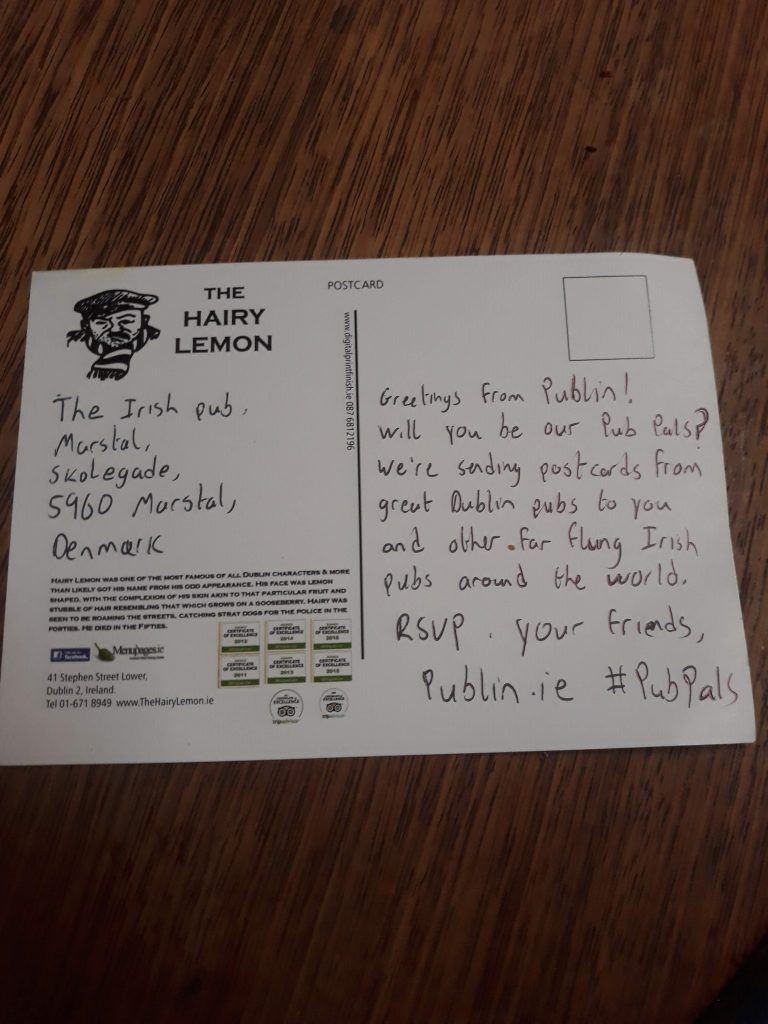 THE
HAIRY
LEMON
POSTCARD
www.digitalprintfinish.ie 087 6812196
The Irish pub,
Marstal,
Skolegade,
5960 Marstal,
Denmark
HAIRY LEMON WAS ONE OF THE MOST FAMOUS OF ALL DUBLIN CHARACTERS & MORE
THAN LIKELY GOT HIS NAME FROM HIS ODD APPEARANCE. HIS FACE WAS LEMON
SHAPED, WITH THE COMPLEXION OF HIS SKIN AKIN TO THAT PARTICULAR FRUIT AND
STUBBLE OF HAIR RESEMBLING THAT WHICH GROWS ON A GOOSEBERRY. HAIRY WAS
SEEN TO BE ROAMING THE STREETS, CATCHING STRAY DOGS FOR THE POLICE IN THE
FORTIES. HE DIED IN THE FIFTIES.
facebook
Menupages.ie
CERTIFICATE OF EXCELLENCE
2014
CERTIFICATE OF EXCELLENCE
CERTIFICATE OF EXCELLENCE
CERTIFICATE OF EXCELLENCE
2011
CERTIFICATE OF EXCELLENCE
CERTIFICATE OF EXCELLENCE
EXCELLENCE
tripadvisor
tripadvisor
41 Stephen Street Lower,
Dublin 2, Ireland.
Tel 01-671 8949 www.TheHairyLemon.ie
Greetings from Publin!
Will you be our Pub Pals?
We're sending postcards from
great Dublin pubs to you
and other far flung Irish
pubs around the world.
RSVP. Your friends,
Publin.ie #PubPals